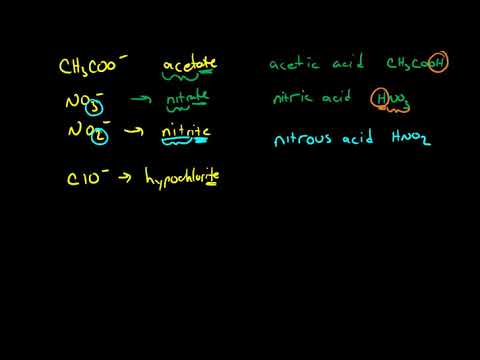 CH₃COO⁻ acetate acetic acid CH₃COOH
NO₃⁻ → nitrate nitric acid HNO₃
NO₂⁻ → nitrite nitrous acid HNO₂
ClO⁻ → hypochlorite